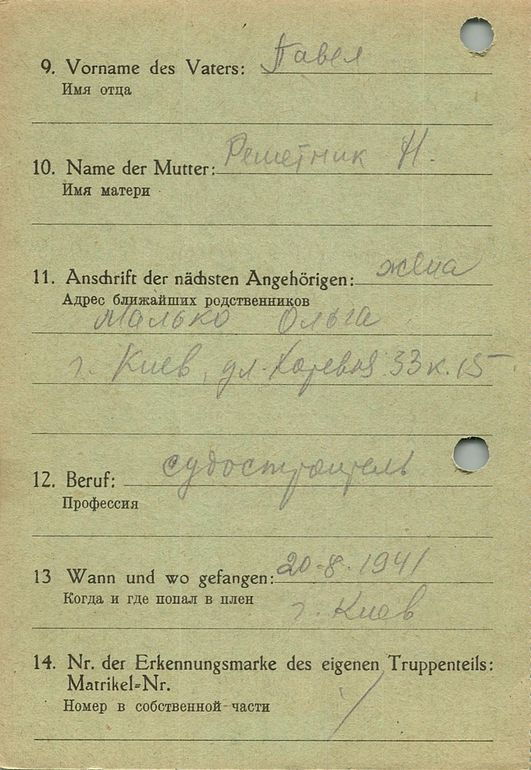 9. Vorname des Vaters: Павел
Имя отца
10. Name der Mutter: Решетник Н.
Имя матери
11. Anschrift der nächsten Angehörigen: жена
Адрес ближайших родственников
Малько Ольга
г. Киев, ул. Хоревая 33 к. 15
12. Beruf: судостроитель
Профессия
13 Wann und wo gefangen: 20.8.1941
Когда и где попал в плен
г. Киев
14. Nr. der Erkennungsmarke des eigenen Truppenteils:
Matrikel-Nr.
Номер в собственной части